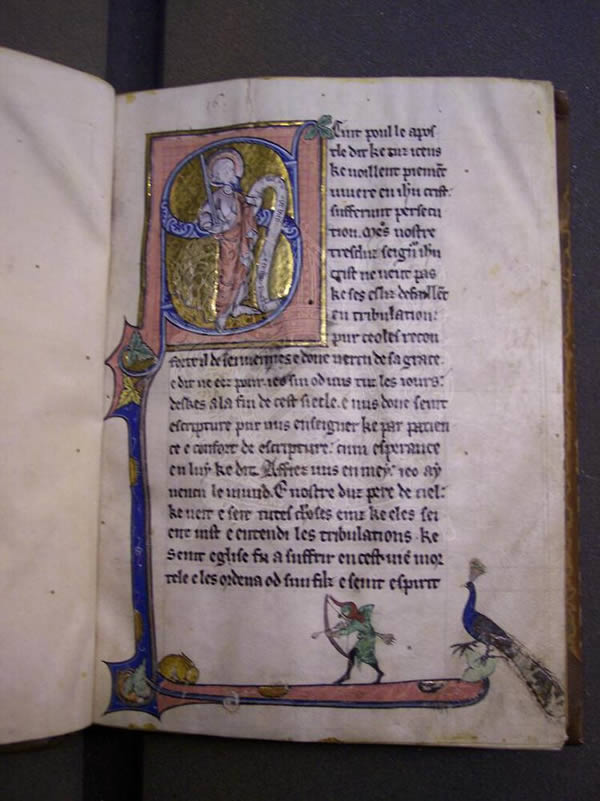 Eint poul le apos
tle dit ke tuz iceus
ke voillent piemẽt
vivere en ihũ crist:
suffrirunt persecu
tion. Mes nostre
tresduz seigñ ihũ
crist ne veut pas
ke ses esluz defaillẽt
en tribulation:
pur ceo les recon
forte il de e done vertu de sa grace.
e dit ne eez pour. ieo sui od vus tuz les iours.
deskes a la fin de cest siecle. e nus done seint
escripture pur nus enseigner ke par pacien
ce e confort de escripture: eum esperance
en luy ke dit. Affiez vus en mey. ieo ay
vencu le mund. E nostre duz pere de ciel:
ke veit e seit tutes choses einz ke eles sei
ent vist e entendi les tribulations. ke
seint eglise fu a suffrir en cest vie mor
tele e les ordena od sun filz e seint espirit